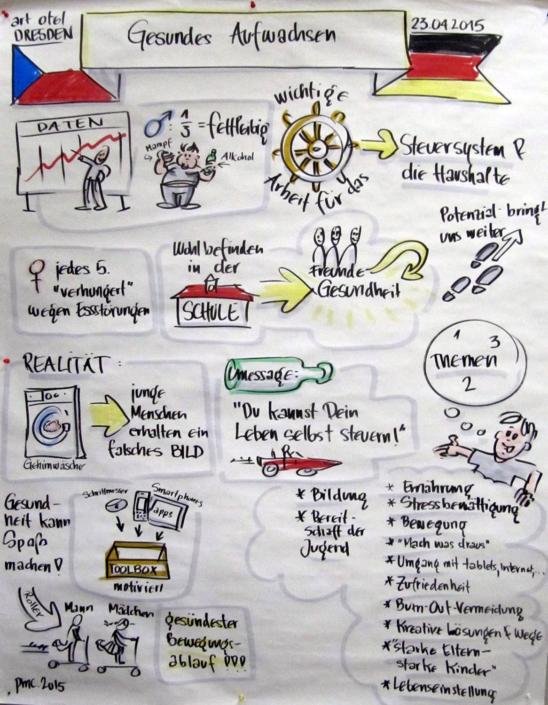 art otel
DRESDEN
Gesundes Aufwachsen
23.04.2015
DATEN
♂: 1/3 = fettleibig
Mampf
Alkohol
wichtige
Arbeit für das
Steuersystem &
die Haushalte
Potenzial bringt
uns weiter
♀ jedes 5.
"verhungert"
wegen Essstörungen
Wohlbefinden
in der
SCHULE
Freunde
Gesundheit
REALITÄT:
Gehirnwäscher
junge
Menschen
erhalten ein
falsches BILD
message:
"Du kannst Dein
Leben selbst steuern!"
1 3
Themen
2
Gesund-
heit kann
Spaß
machen!
Schrittmesser
Smartphones
apps
TOOLBOX
motiviert
* Bildung
* Bereit-
schaft der
Jugend
* Ernährung
* Stressbewältigung
* Bewegung
* "Mach was draus"
* Umgang mit tablets, internet,...
* Zufriedenheit
* Burn-Out-Vermeidung
* Kreative Lösungen & Wege
* "starke Eltern-
starke Kinder"
* Lebenseinstellung
Roller
Mann
Mädchen
gesündester
Bewegungs-
ablauf!!!
pmc. 2015